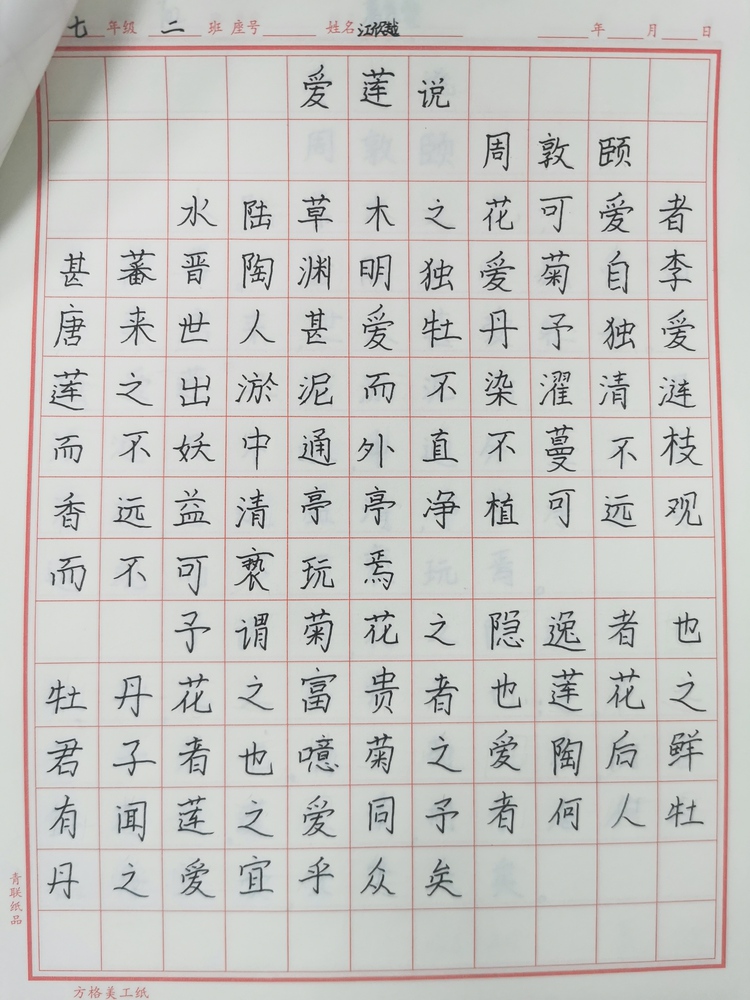 七年级 二 班 座号 姓名 江欣越 年 月 日
爱莲说
周敦颐
水陆草木之花可爱者
甚蕃晋陶渊明独爱菊自李
唐来世人甚爱牡丹予独爱
莲之出淤泥而不染濯清涟
而不妖中通外直不蔓不枝
香远益清亭亭净植可远观
而不可亵玩焉
予谓菊花之隐逸者也
牡丹花之富贵者也莲花之
君子者也噫菊之爱陶后鲜
有闻莲之爱同予者何人牡
丹之爱宜乎众矣
青联纸品
方格美工纸